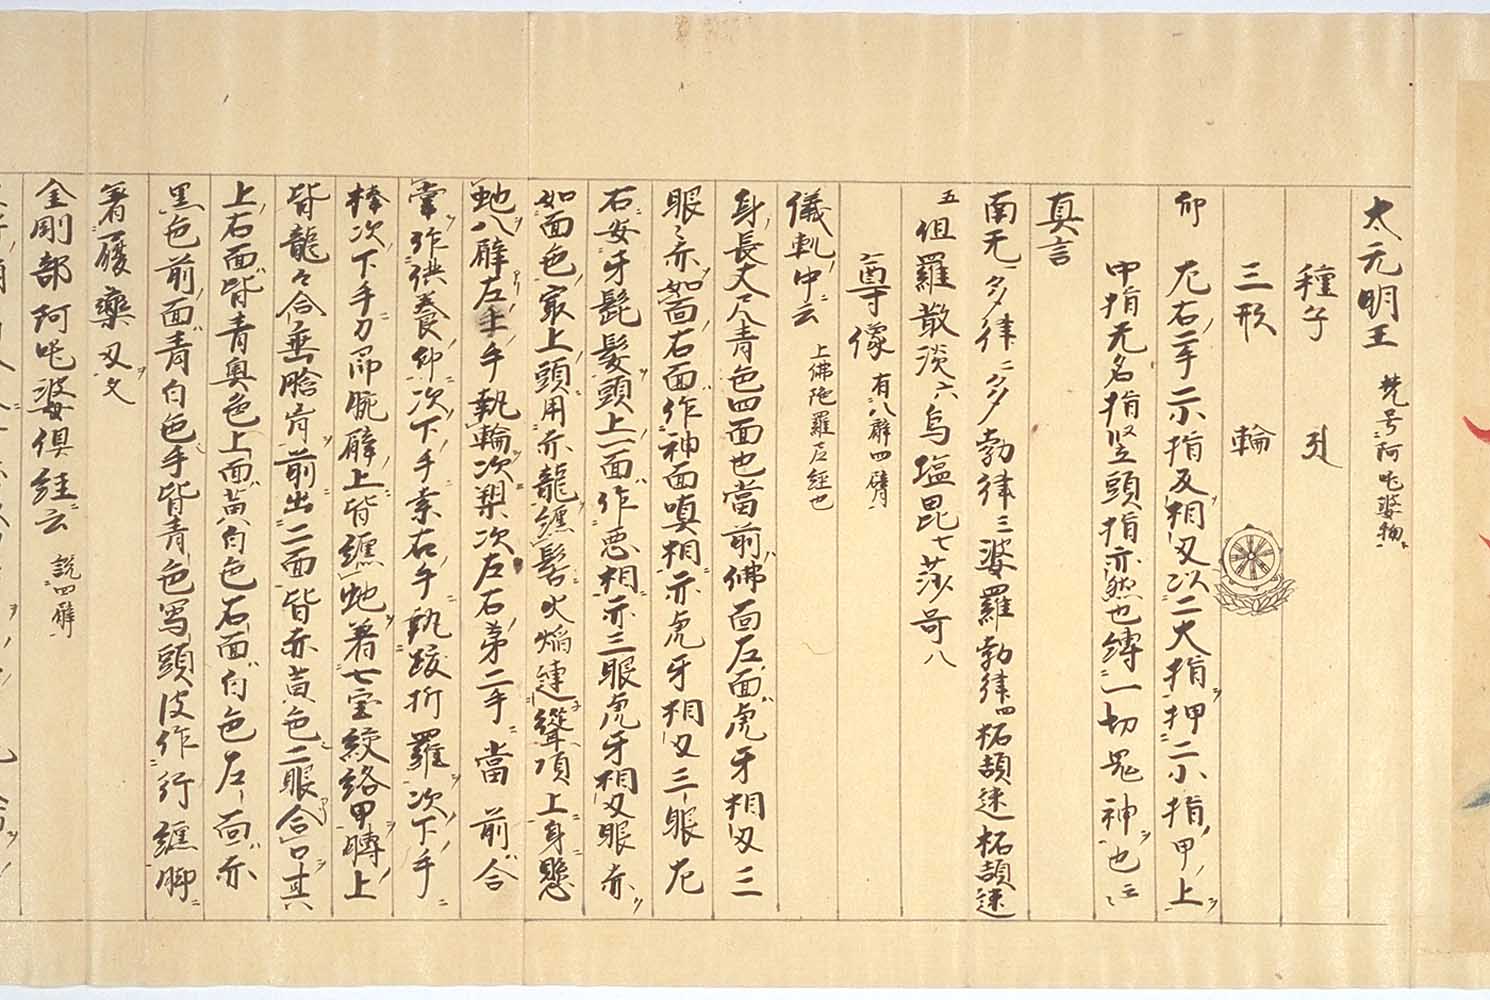 太元明王 梵号阿吒婆物
種子 引
三形 輪
印 左右二手示指反相叉以二大指押二小指甲上
中指无名指竪頭指亦然也縛一切鬼神也云々
真言
南无一多律二多勃律三婆羅勃律四柘頡迷柘頡迷
五但羅散淡六烏塩毘七莎哥八
尊像 有八臂四臂
儀軌中云 上佛陀羅尼経也
身長丈尺青色四面也當前佛面左面虎牙相叉三
眼々赤如面右面作神面嗔相亦虎牙相叉三眼左
右安牙髭髪頭上一面作悪相亦三眼虎牙相叉眼赤
如面色最上頭用赤龍纏髻火焔連聳頂上身懸
虵八臂左上手執輪次槊次左右第二手當前合
掌作供養印次下手索右手執跋折羅次下手
棒次下手刀帶腕臂上皆纏虵着七宝絞絡甲膊上
皆龍々合垂膽前出二面皆赤黄色二眼合口其
上右面皆青奥色上面黄白色右面白色左面赤
黒色前面青白色手皆青色写頭皮作行纏脚
著履藥叉文
金剛部阿吒婆倶経云 説四臂